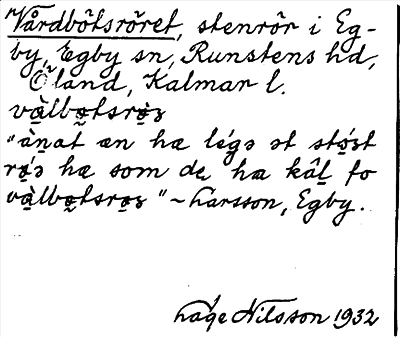 Vårdbötsröret, stenrör i Eg-
by, Egby sn, Runstens hd,
Öland, Kalmar l.
và̤lbo̤tsrø̤z
"à̤nat æn hæ légə ət stǿ̤st
rǿ̤ə hæ som de hæ kâḻ fo
và̤lbo̤tsrø̤z" ~ Larsson, Egby.
Låge Nilsson 1932